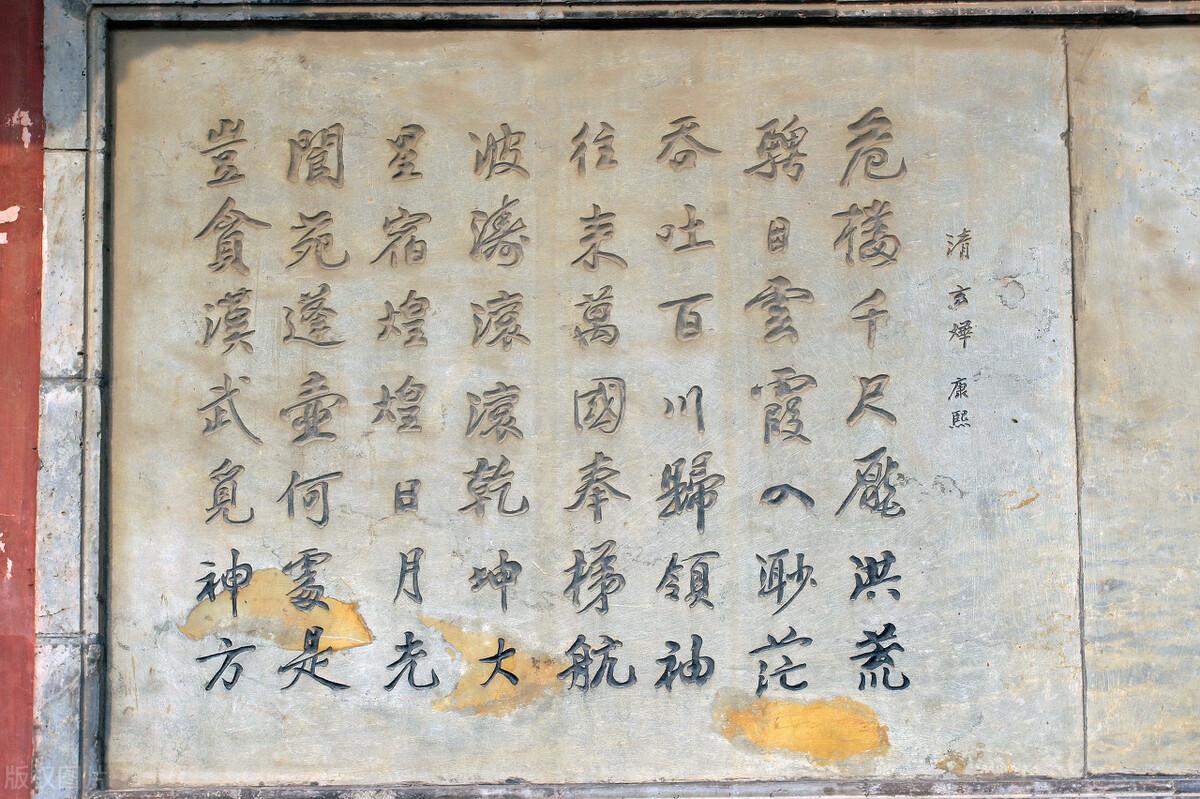 清 玄燁 康熙
危樓千尺壓洪荒
騁目雲霞入渺茫
吞吐百川歸領袖
往來萬國奉梯航
波濤滾滾乾坤大
星宿煌煌日月光
閬苑蓬壺何處是
豈貪漢武覓神方